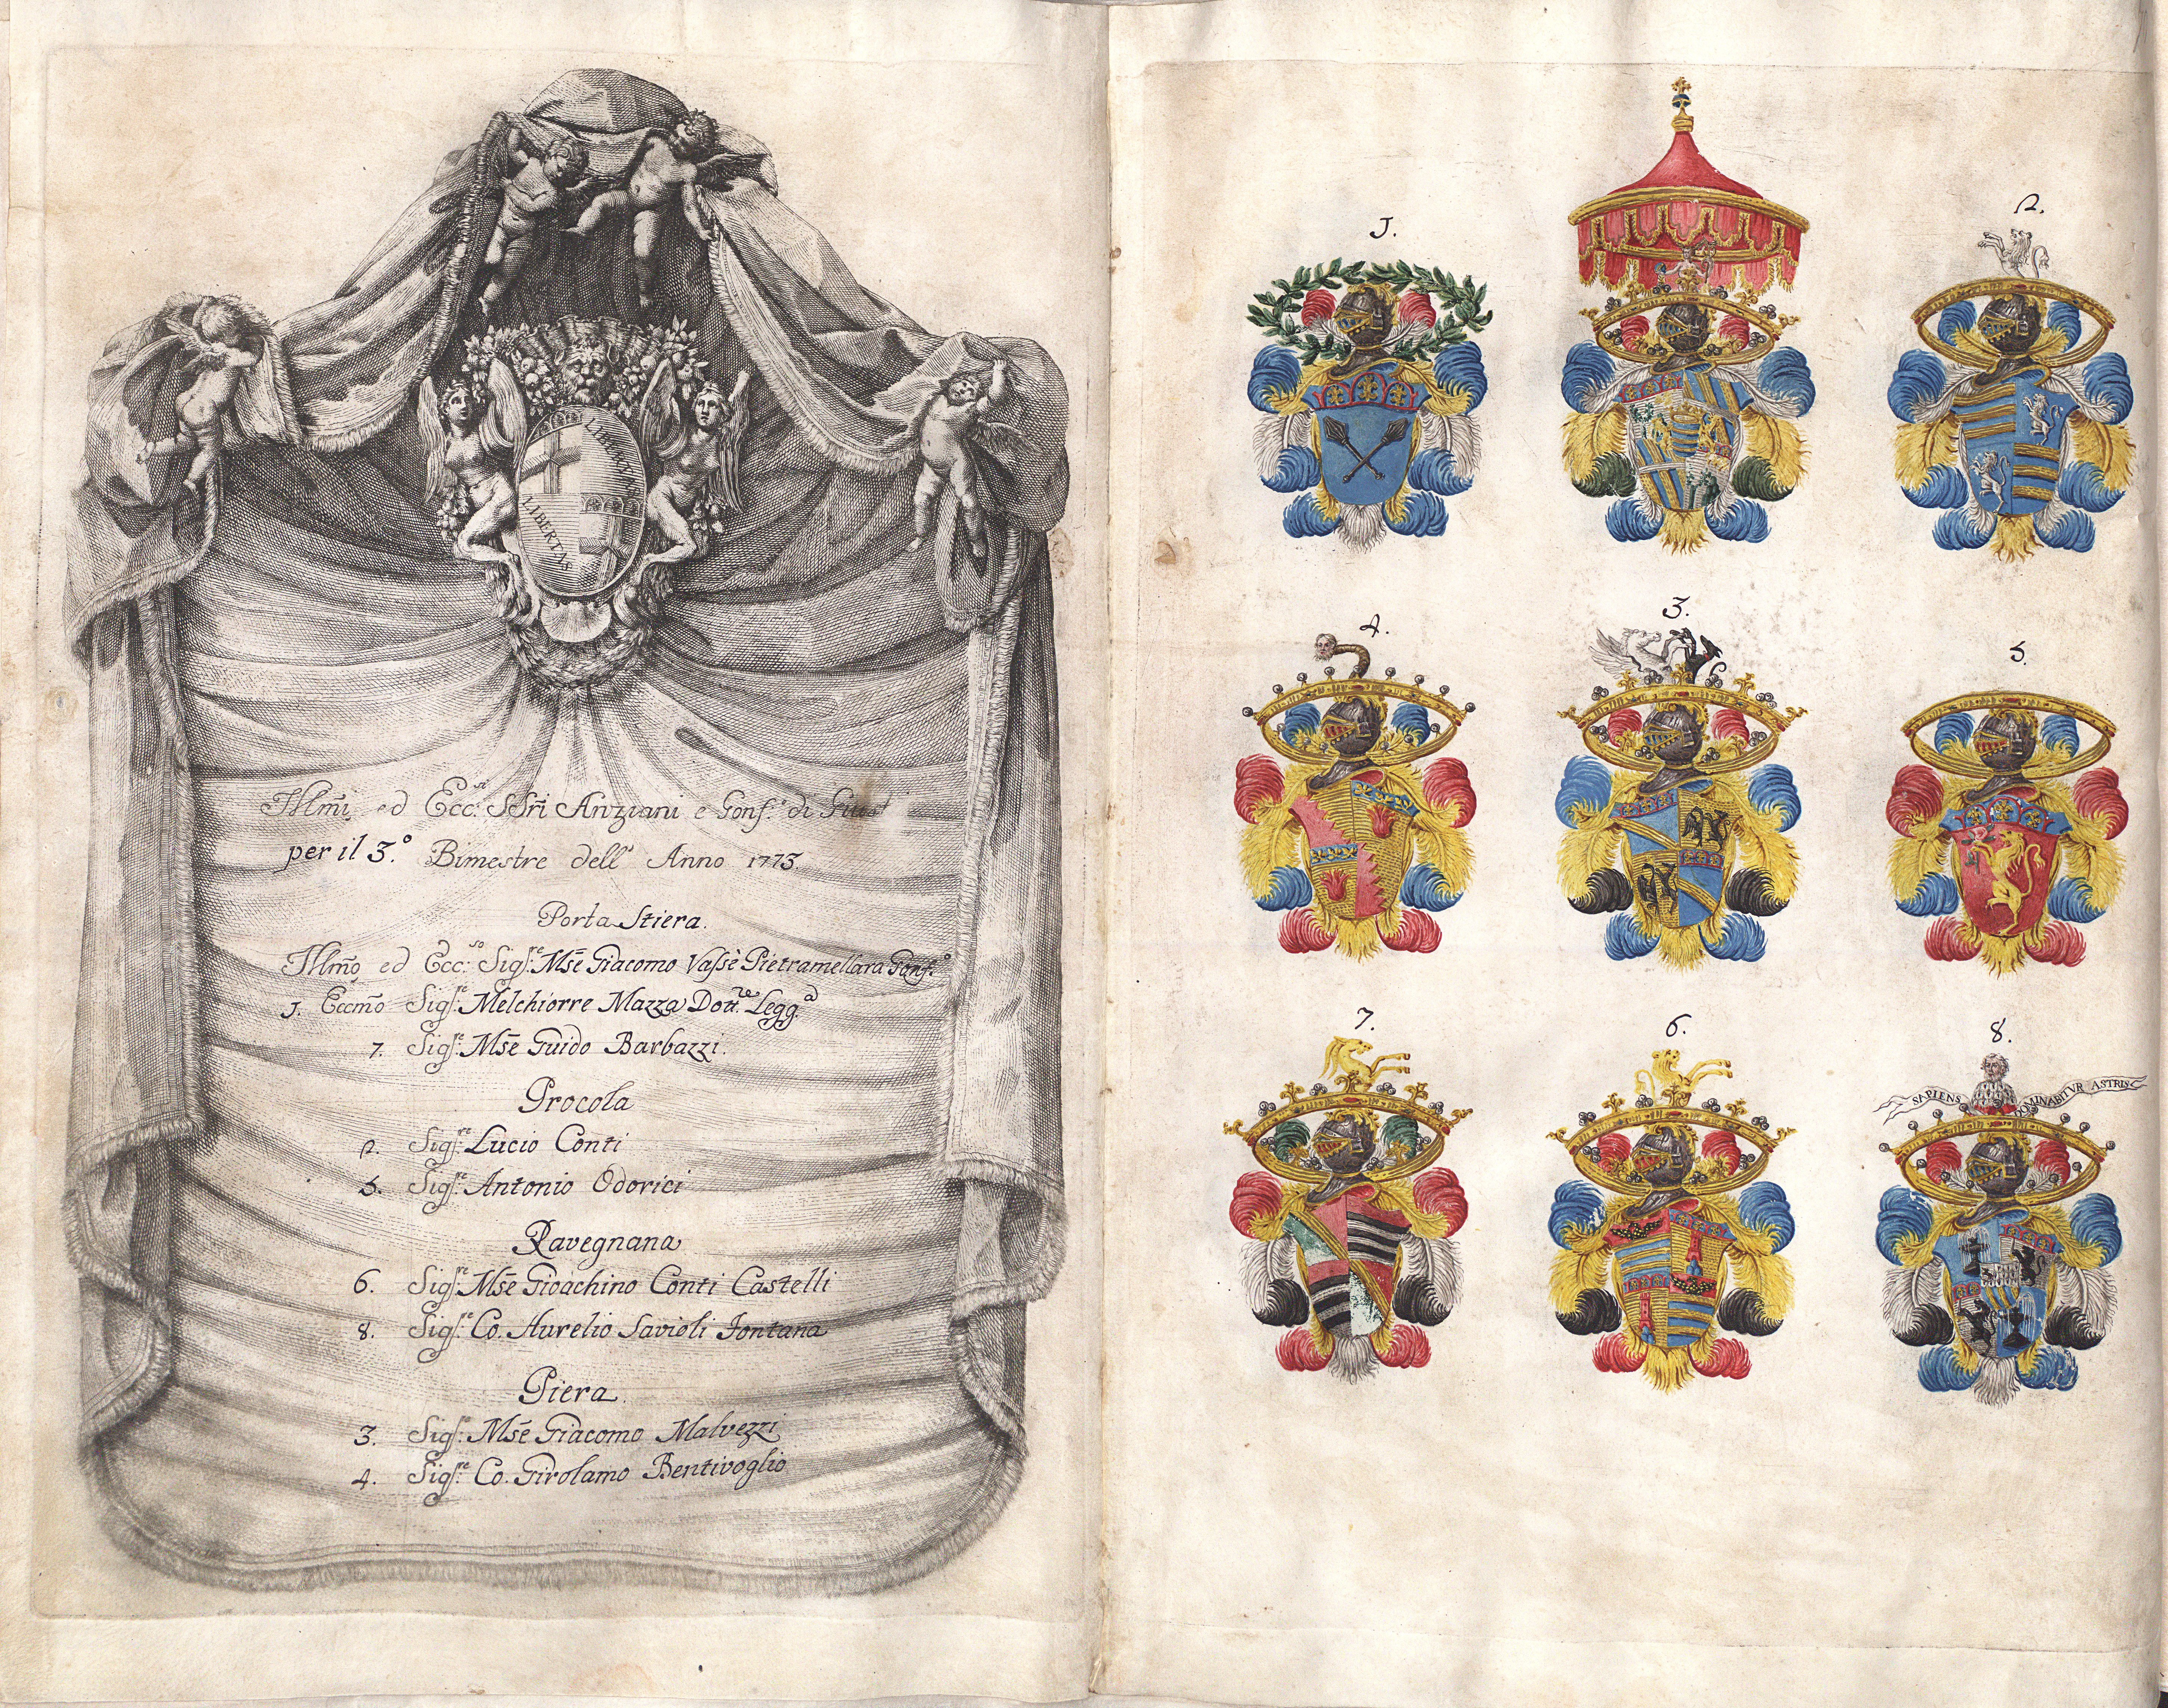 LIBERTAS
LIBERTAS
Illm̃i ed Ecc.si SSri Anziani e Gonf.e di Giust
per il 3.o Bimestre dell' Anno 1773.
Porta Stiera.
Illm̃o ed Ecc.so Sigf.re Mse Giacomo Vassè Pietramellara Gonf.e
1. Eccm̃o Sigf.re Melchiorre Mazza Dott.re Legg.a
7. Sigf.re Mse Guido Barbazzi.
Procola
2. Sigf.re Lucio Conti
5. Sigf.re Antonio Odorici
Ravegnana
6. Sigf.re Mse Gioachino Conti Castelli
8. Sigf.re Co. Aurelio Savioli Fontana
Piera.
3. Sigf.re Mse Giacomo Malvezzi
4. Sigf.re Co. Girolamo Bentivoglio
1.
2.
4.
3.
5.
7.
6.
8.
SAPIENS DOMINABITVR ASTRIS